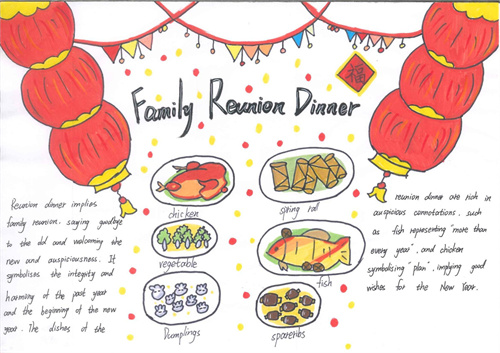 福
Family Reunion Dinner
chicken
spring roll
vegetable
fish
Dumplings
spareribs
Reunion dinner implies
family reunion, saying goodbye
to the old and welcoming the
new and auspiciousness. It
symbolises the integrity and
harmony of the past year
and the beginning of the new
year. The dishes of the
reunion dinner are rich in
auspicious connotations, such
as fish representing "more than
every year", and chicken
symbolising "plan", implying good
wishes for the New Year.